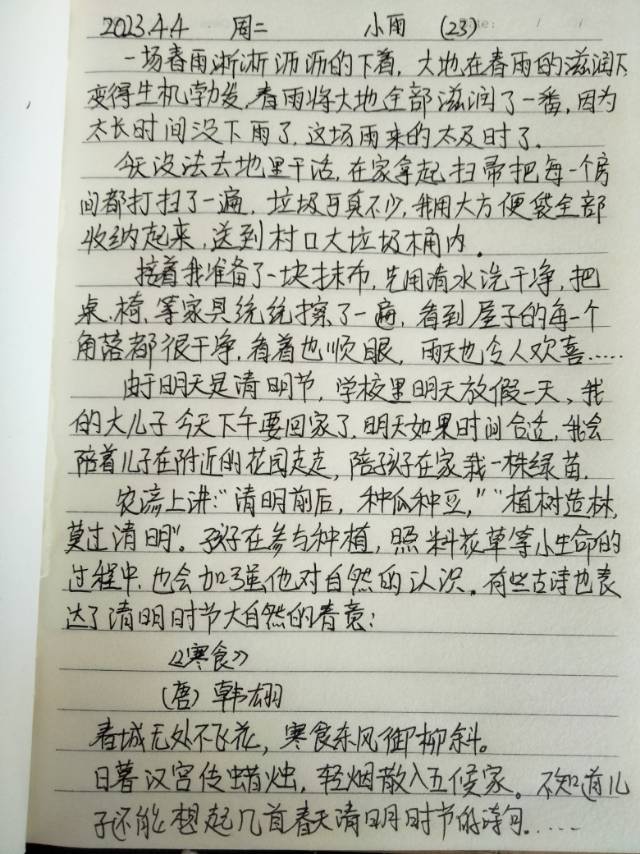 2023.4.4 周二 小雨 (23)
一场春雨淅淅沥沥的下着，大地在春雨的滋润下
变得生机勃发，春雨将大地全部滋润了一番，因为
太长时间没下雨了，这场雨来的太及时了。
今天没法去地里干活，在家拿起扫帚把每一个房
间都打扫了一遍，垃圾可真不少，我用大方便袋全部
收纳起来，送到村口大垃圾桶内。
接着我准备了一块抹布，先用清水洗干净，把
桌、椅、等家具统统擦了一遍，看到屋子的每一个
角落都很干净，看着也顺眼，雨天也令人欢喜……
由于明天是清明节，学校里明天放假一天，我
的大儿子今天下午要回家了，明天如果时间合适，我会
陪着儿子在附近的花园走走，陪孩子在家栽一株绿苗.
农谚上讲：“清明前后，种瓜种豆，”“植树造林，
莫过清明”。孩子在参与种植，照料花草等小生命的
过程中，也会加强他对自然的认识。有些古诗也表
达了清明时节大自然的春意：
《寒食》
(唐) 韩翃
春城无处不飞花，寒食东风御柳斜。
日暮汉宫传蜡烛，轻烟散入五侯家。不知道儿
子还能想起几首春天清明时节的诗句……